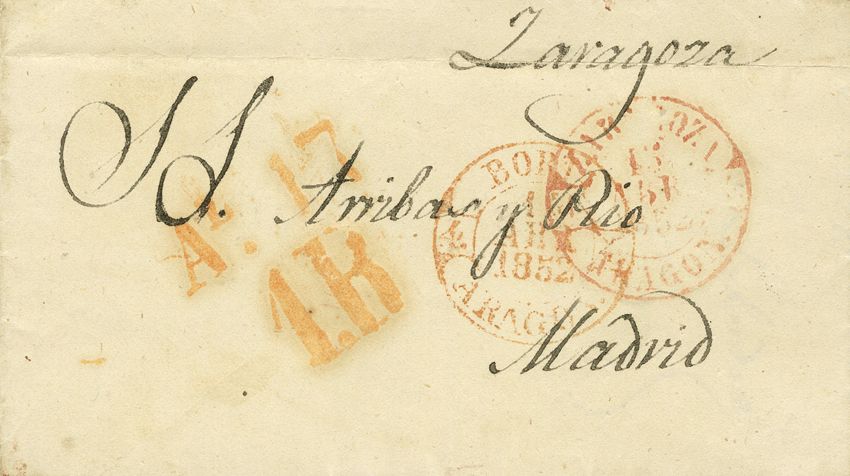 Zaragoza
S. S. Arribas y Rio
Madrid
1R
BORJA
ABR
1852
ARAGON
ZARAGOZA
ARAGON